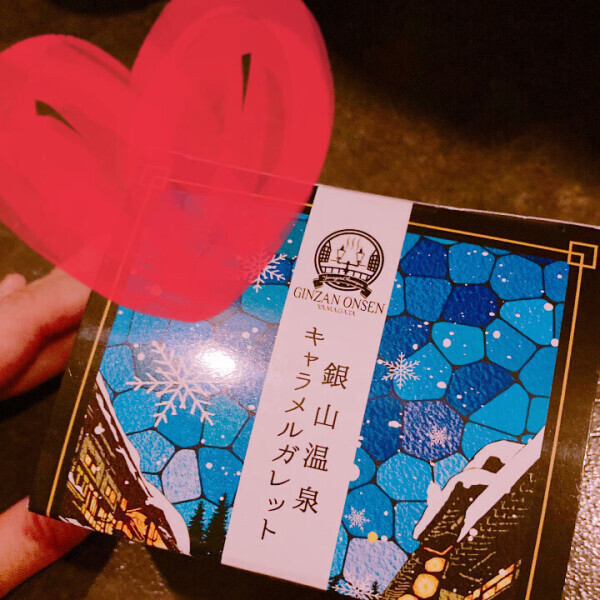 GINZAN ONSEN
YAMAGATA
銀山温泉
キャラメルガレット